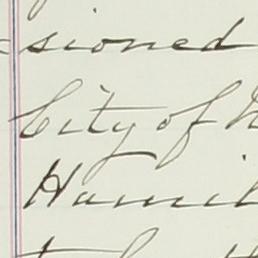 sioned
City of
Hamil